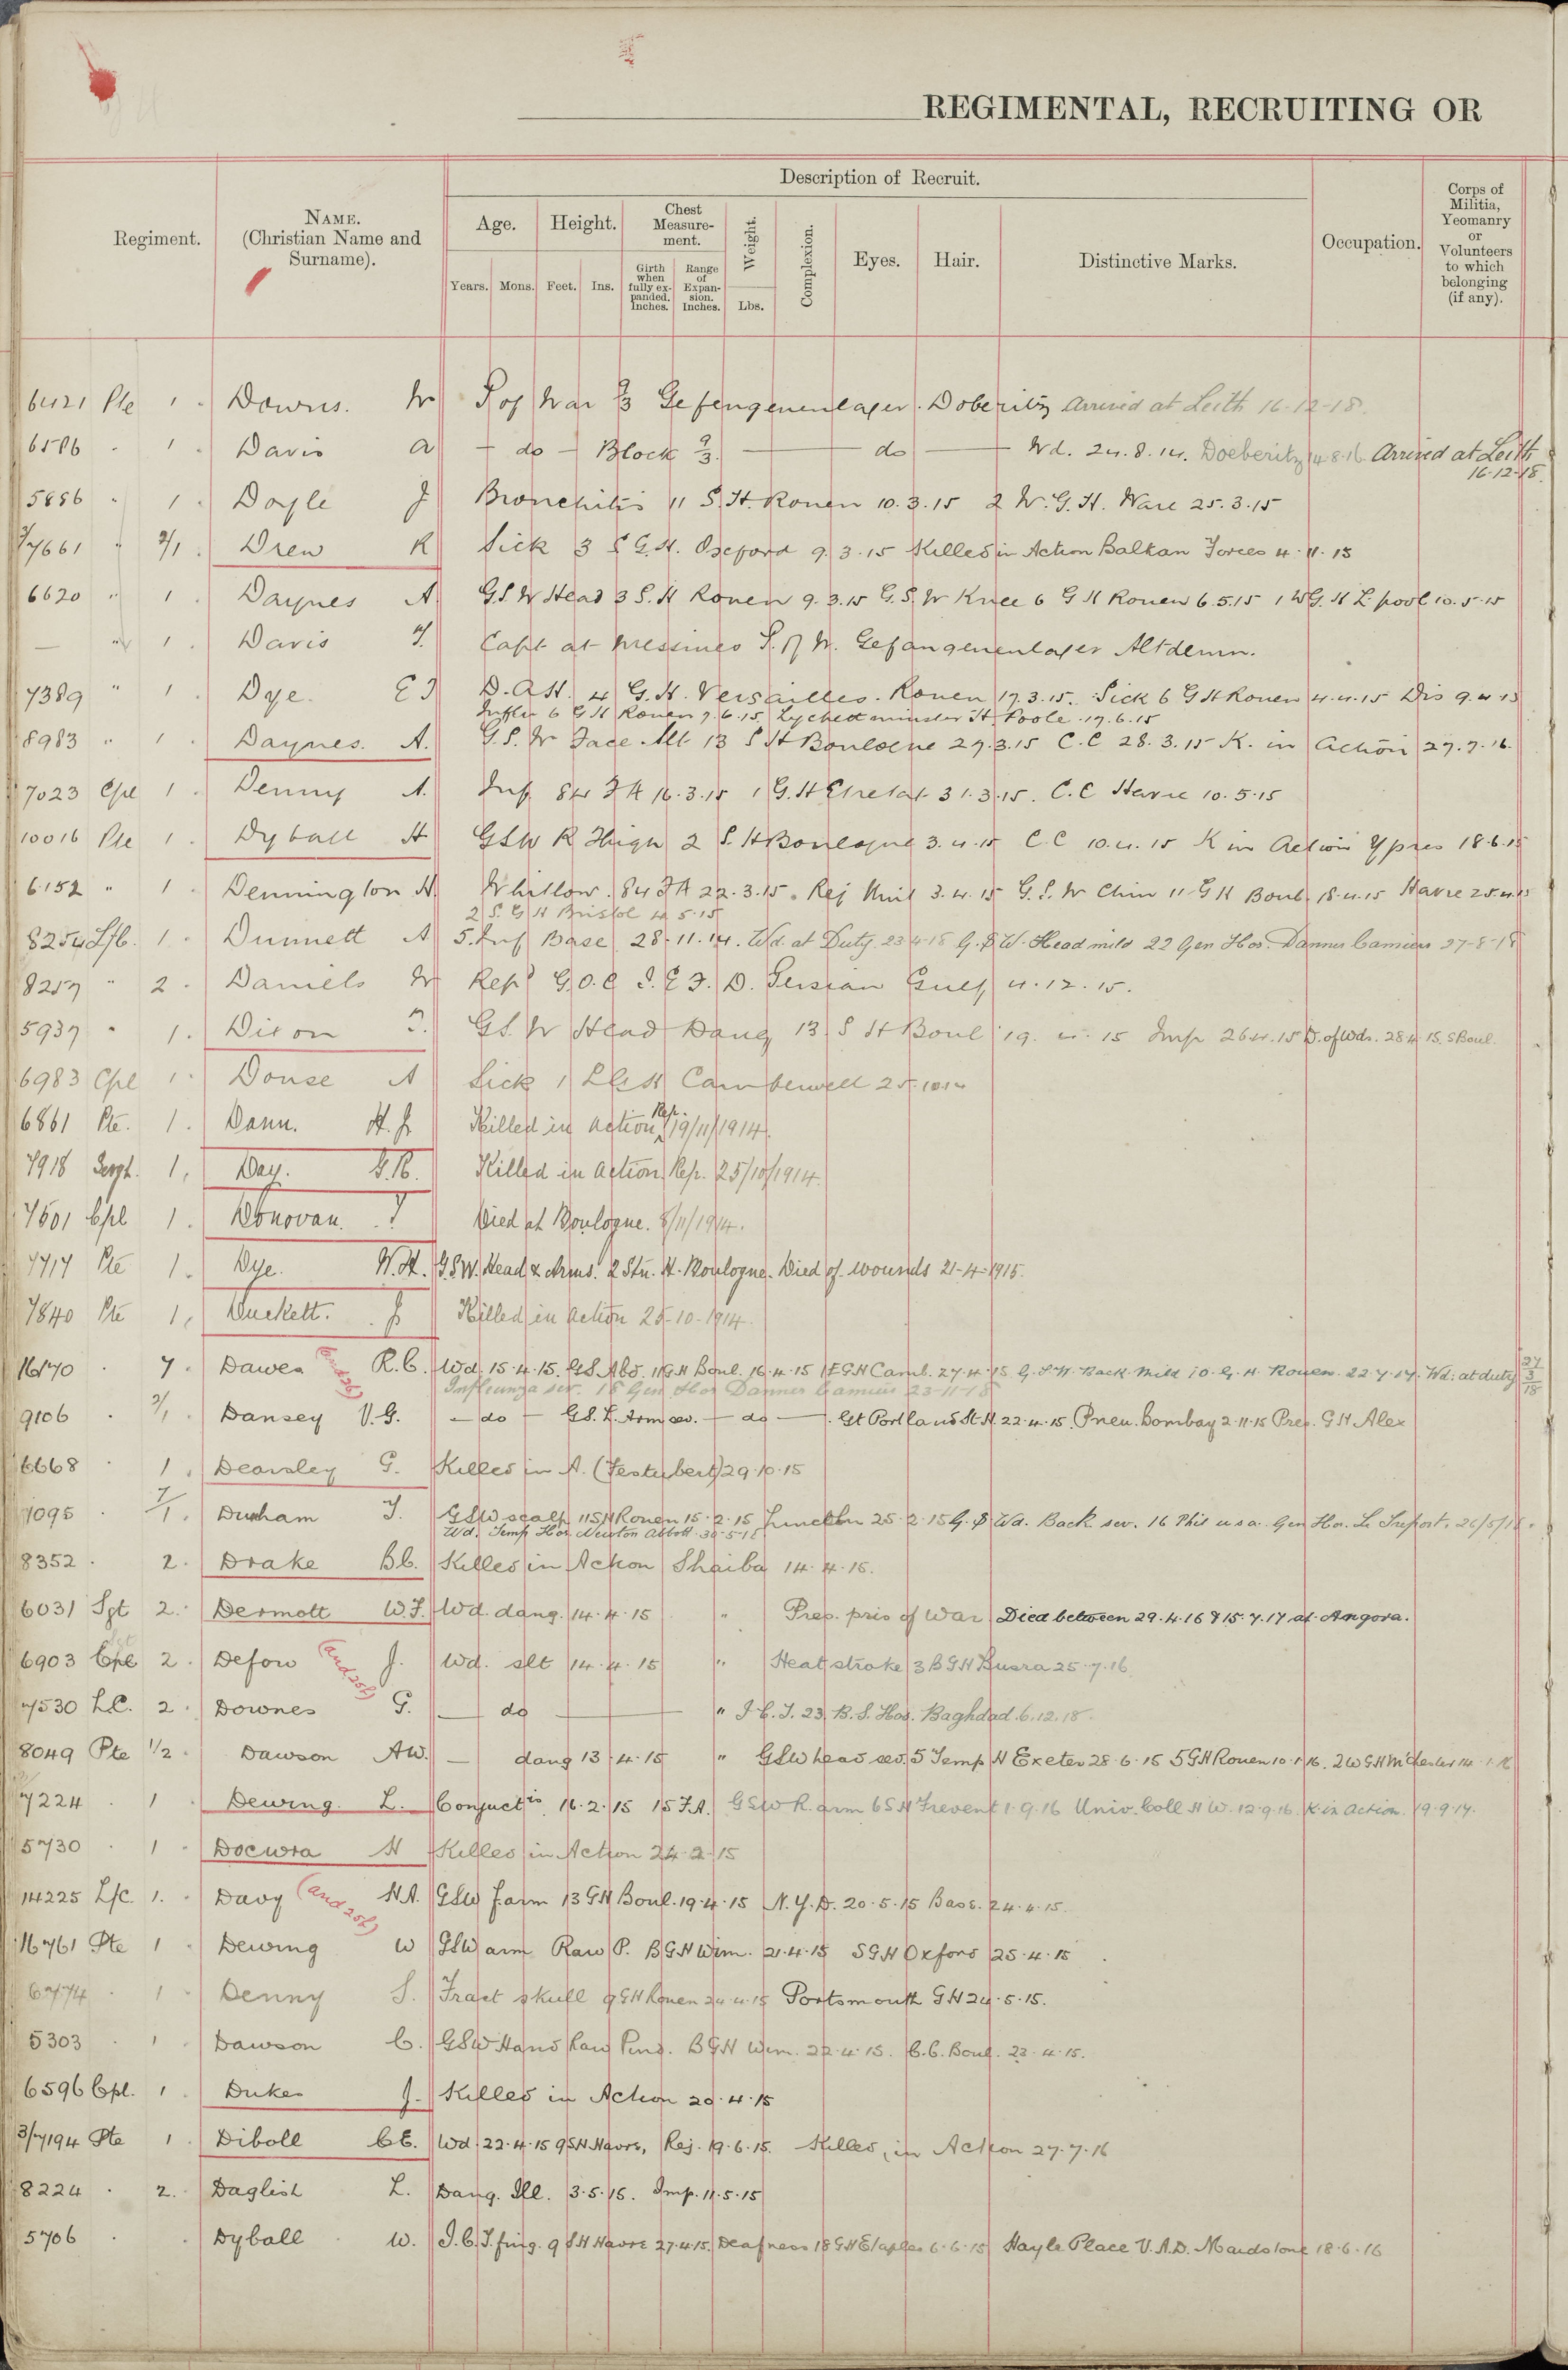 REGIMENTAL, RECRUITING OR
Description of Recruit.
Regiment. NAME. (Christian Name and Surname). Age. Height. Chest Measurement. Weight. Complexion. Eyes. Hair. Distinctive Marks. Occupation. Corps of Militia, Yeomanry or Volunteers to which belonging (if any).
Years. Mons. Feet. Ins. Girth when fully expanded. Inches. Range of Expansion. Inches. Lbs.
6421 Pte 1 Downs. W P of War 9/3 Gefengenenlager. Doberitz Arrived at Leith 16-12-18.
6586 " 1 Davis A - do - Block 9/3. do Wd. 24.8.14. Doeberitz 14.8.16. Arrived at Leith
16.12.18.
5886 " 1 Doyle J Bronchitis 11 S.H. Rouen 10.3.15 2 W.G.H. Ware 25.3.15
3/7661 " 2/1 Drew R Sick 3 S G.H. Oxford 9.3.15 Killed in Action Balkan Forces 4.11.15
6620 " 1 Daynes A G.S.W Head 3 S.H Rouen 9.3.15 G.S.W Knee 6 G H Rouen 6.5.15 1 W.G.H L'pool 10.5.15
— " 1 Davis T. Capt at Messines P. of W. Gefangenenlager Altdamm.
7389 " 1 Dye. E J D.A.H. 4 G.H. Versailles. Rouen 17.3.15. Sick 6 G H Rouen 4.4.15 Dis 9.4.15
Influ 6 G H Rouen 7.6.15 Lychett minster H Poole 17.6.15
8983 " 1 Daynes. A. G.S.W Face Slt 13 S H Boulogne 27.3.15 C.C 28.3.15 K. in action 27.7.16.
7023 Cpl 1 Denny A. Inf 84 F A 16.3.15 1 G.H Etretat 31.3.15. C.C Havre 10.5.15
10016 Pte 1 Dyball H GSW R Thigh 2 S.H Boulogne 3.4.15 C.C 10.4.15 K in Action Ypres 18.6.15
6152 " 1 Dennington H. Whitlow. 84 F A 22.3.15. Rej Unit 3.4.15 G.S.W Chin 11 G H Boul. 18.4.15 Havre 25.4.15
2 S. G H Bristol 4.5.15
8254 L/C. 1 Dunnett A 5. Inf Base 28.11.14. Wd. at Duty. 23-4-18 G.S W. Head mild 22 Gen Hos. Dannes Camiers 27-8-18
8257 " 2 Daniels W Repd G.O.C I.E F. D. Persian Gulf 4.12.15.
5937 " 1. Dixon T. G.S. W Head Dang 13 S H Boul 19.4.15 Imp 26.4.15 D. of Wds. 28.4.15. S Boul.
6983 Cpl 1 Douse A Sick 1 L G H Camberwell 25.10.14
6861 Pte. 1. Dann. H. J Killed in action Rep. 19/11/1914.
7918 Sergt. 1. Day. G.R. Killed in action Rep. 25/10/1914.
7601 Cpl 1. Donovan. T Died at Boulogne. 8/11/1914.
7717 Pte 1. Dye. W.H. G.S.W. Head & Arms. 2 Stn. H. Boulogne. Died of wounds 21-4-1915.
7840 Pte 1. Duckett. J Killed in action 25-10-1914.
16170 . 7. Dawes (and 26) R.C. Wd. 15.4.15. GS. Abd. 11 G H Boul. 16.4.15 1 E G H Camb. 27.4.15 G.S.W. Back Mild 10. G.H. Rouen. 22.7.17. Wd: at duty 27/3/18
Influenza sev. 18 Gen Hos Dannes Camiers 23-11-18
9106 . 2/1 Dansey V.G. - do - GS. L. Arm sev. - do - Gt Portland St H. 22.4.15 Pneu. Bombay 2.11.15 Pres. G H Alex
6668 . 1. Dearsley G. Killed in A. (Festubert) 29.10.15
7095 . 7/1. Durham T. GSW scalp 11 S H Rouen 15.2.15 Function 25.2.15 G.S Wd. Back sev. 16 Phil U S A. Gen Hos. Le Treport, 26/5/18.
Wd. Temp Hos Newton Abbott. 30-5-18
8352 . 2. Drake B.C. Killed in Action Shaiba 14.4.15.
6031 Sgt 2. Dermott W.F. Wd. dang. 14.4.15 " Pres. pris of War Died between 29.4.16 & 15.7.17 at Angora.
6903 Cpl 2. Defow (and 256) J. Wd. slt 14.4.15 " Heat stroke 3 B G H Busra 25.7.16.
7530 L.C. 2. Downes G. — do — " I.C.T. 23. B.S. Hos. Baghdad. 6.12.18.
8049 Pte 1/2 Dawson AW. — dang 13.4.15 " GSW head sev. 5 Temp H Exeter 28.6.15 5 G H Rouen 10.1.16. 2 W G H M'chester 14.1.16
7224 . 1 Dewing. L. Conjunctis. 16.2.15 15 F.A. GSW R. arm 6 S H Frevent 1.9.16 Univ. Coll H W. 12.9.16. K. in action. 19.9.17.
5730 . 1 Docwra H Killed in Action 24.2.15
14225 L/C. 1. Davy (and 256) H.A. GSW f.arm 13 G H Boul. 19.4.15 N.Y.D. 20.5.15 Base. 24.4.15.
16761 Pte 1 Dewing W GSW arm Raw P. B G H Wim. 21.4.15 S G H Oxford 25.4.15
6774 . 1 Denny S. Fract skull 9 G H Rouen 24.4.15 Portsmouth G H 24.5.15.
5303 . 1 Dawson C. GSW Hand Raw Pind. B G H Wim. 22.4.15. C.C. Boul. 23.4.15.
6596 Cpl. 1 Dukes J. Killed in Action 20.4.15
3/7194 Pte 1 Diboll C.E. Wd. 22.4.15 9 S H Havre, Rej. 19.6.15. Killed in Action 27.7.16
8224 . 2. Daglish L. Dang. Ill. 3.5.15. Imp. 11.5.15
5706 . . Dyball W. I.C.T. fing. 9 S H Havre 27.4.15. Deafness 18 G H Etaples 6.6.15 Hayle Place V.A.D. Maidstone 18.6.16